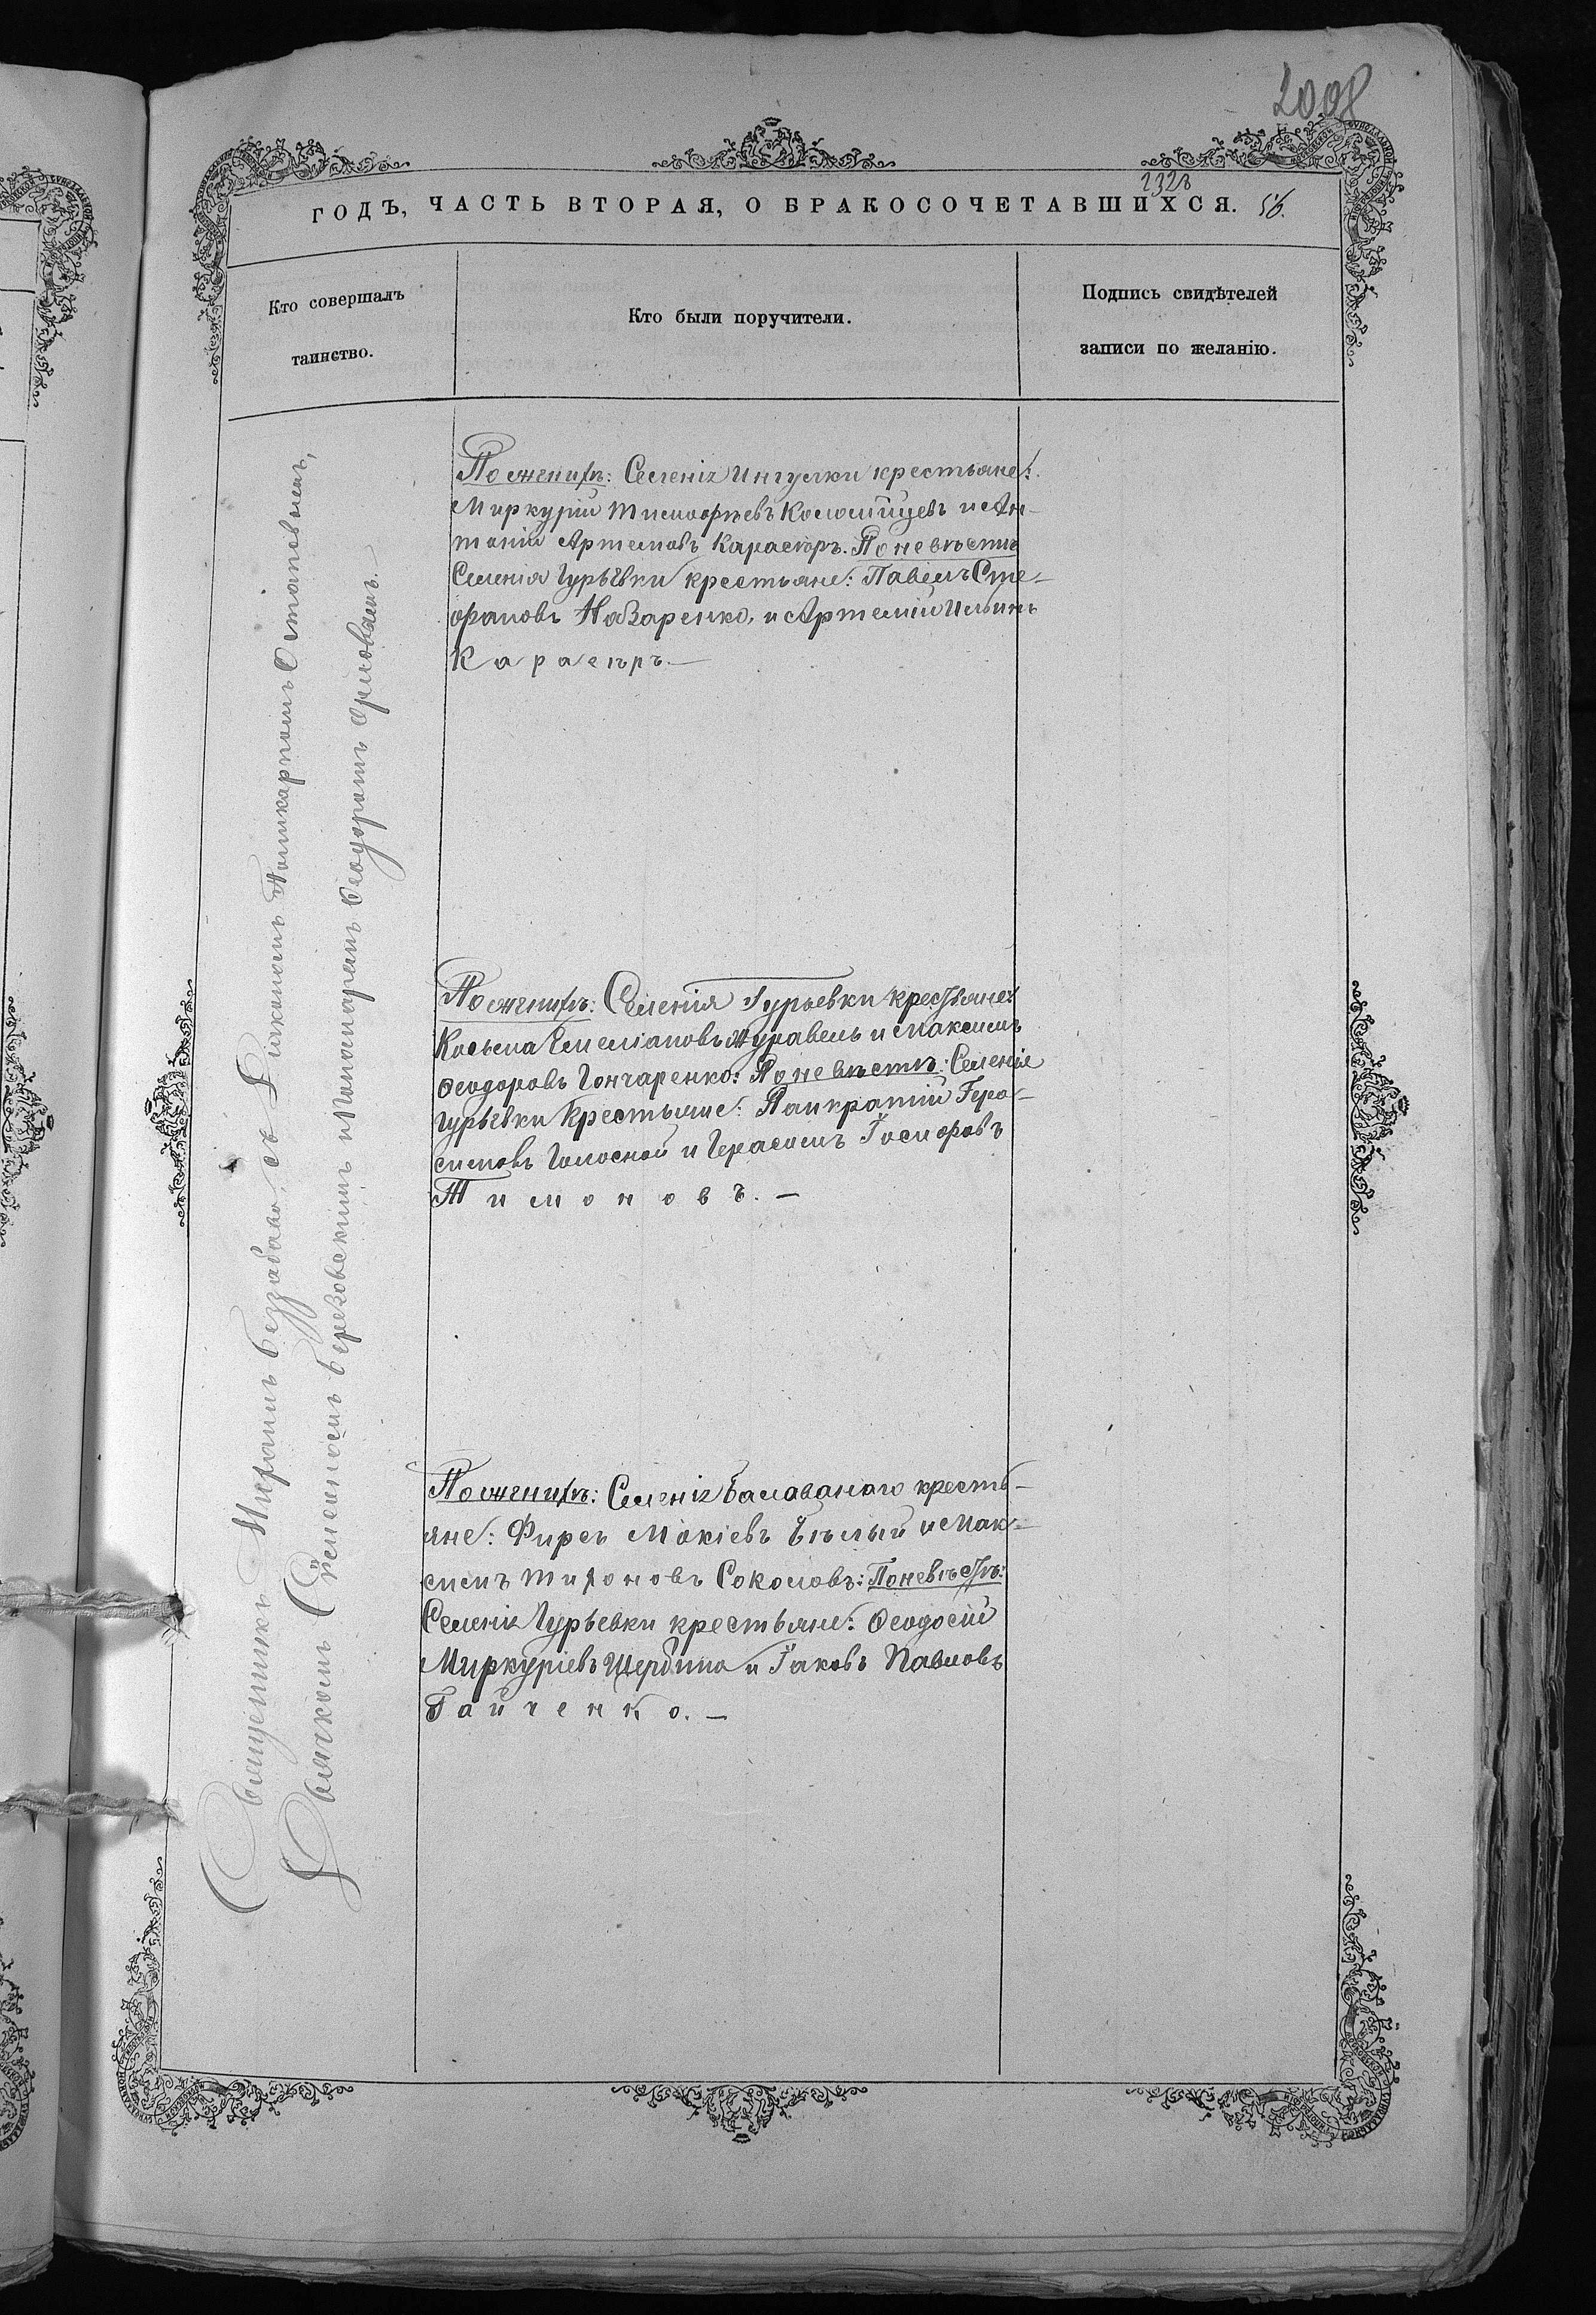 2008
2328
ГОДЪ, ЧАСТЬ ВТОРАЯ, О БРАКОСОЧЕТАВШИХСЯ. 56.
Кто совершалъ
таинство.
Кто были поручители.
Подпись свидѣтелей
записи по желанію.
Священникъ Миронъ Беззабава, съ Діакономъ Поликарпомъ Остаповымъ,
Дьячкомъ Сѵмеономъ Березовскимъ и Пономаремъ Ѳеодоромъ Орловымъ.
По женихѣ: Селенія Ингулки крестьяне:
Миркурій Тимофѣевъ Коломійцевъ и Ан-
тоній Артемовъ Карасѣръ. По невѣстѣ
Селенія Гурьевки крестьяне: Павелъ Сте-
фановъ Назаренко, и Артемій Ильинъ
Карасѣръ.—
По женихѣ: Селенія Гурьевки крестьяне:
Косьма Емеліановъ Журавель и Максимъ
Ѳеодоровъ Гончаренко: По невѣстѣ: Селенія
Гурьевки крестьяне: Панкратій Гера-
симовъ Голосной и Герасимъ Іосифовъ
Тимоновъ.—
По женихѣ: Селенія Балаванаго кресть-
яне: Фирсъ Мокіевъ Бѣлый и Мак-
симъ Тихоновъ Соколовъ: По невѣстѣ:
Селенія Гурьевки крестьяне: Ѳеодосій
Миркуріевъ Щербина и Іаковъ Павловъ
Гайченко.—